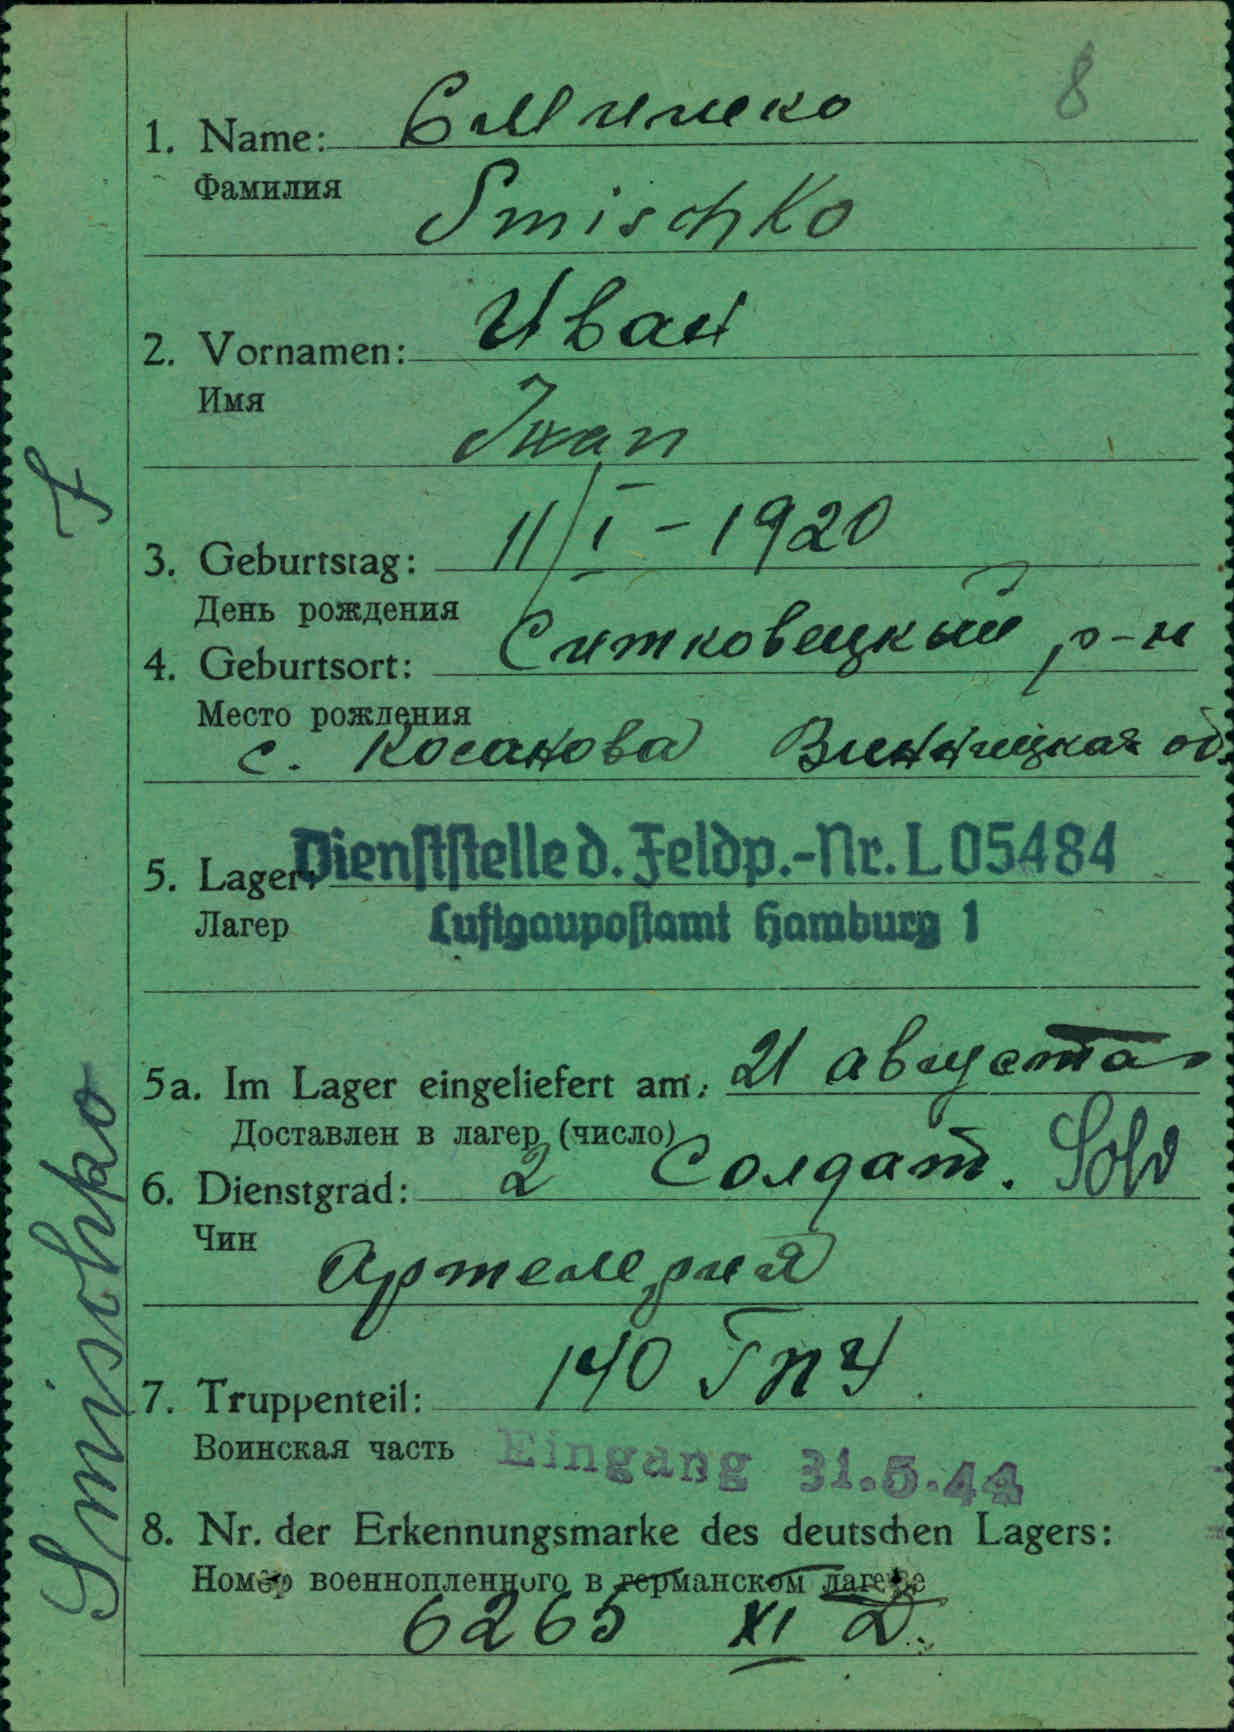 8
1. Name: Смишко
Фамилия
Smischko
2. Vornamen: Иван
Имя
Iwan
3. Geburtstag: 11/I - 1920
День рождения
4. Geburtsort: Ситковецкий р-н
Место рождения
с. Косанова Винницкая об.
5. Lager: Dienststelle d. Feldp.-Nr. L 05484
Лагер
Luftgaupostamt Hamburg 1
5a. Im Lager eingeliefert am: 21 августа
Доставлен в лагер (число)
6. Dienstgrad: 2 Солдат. Sold
Чин
Артелерия
7. Truppenteil: 140 ГПУ
Воинская часть
Eingang 31.5.44
8. Nr. der Erkennungsmarke des deutschen Lagers:
Номер военнопленного в германском лагере
6265 XI D.
Smischko